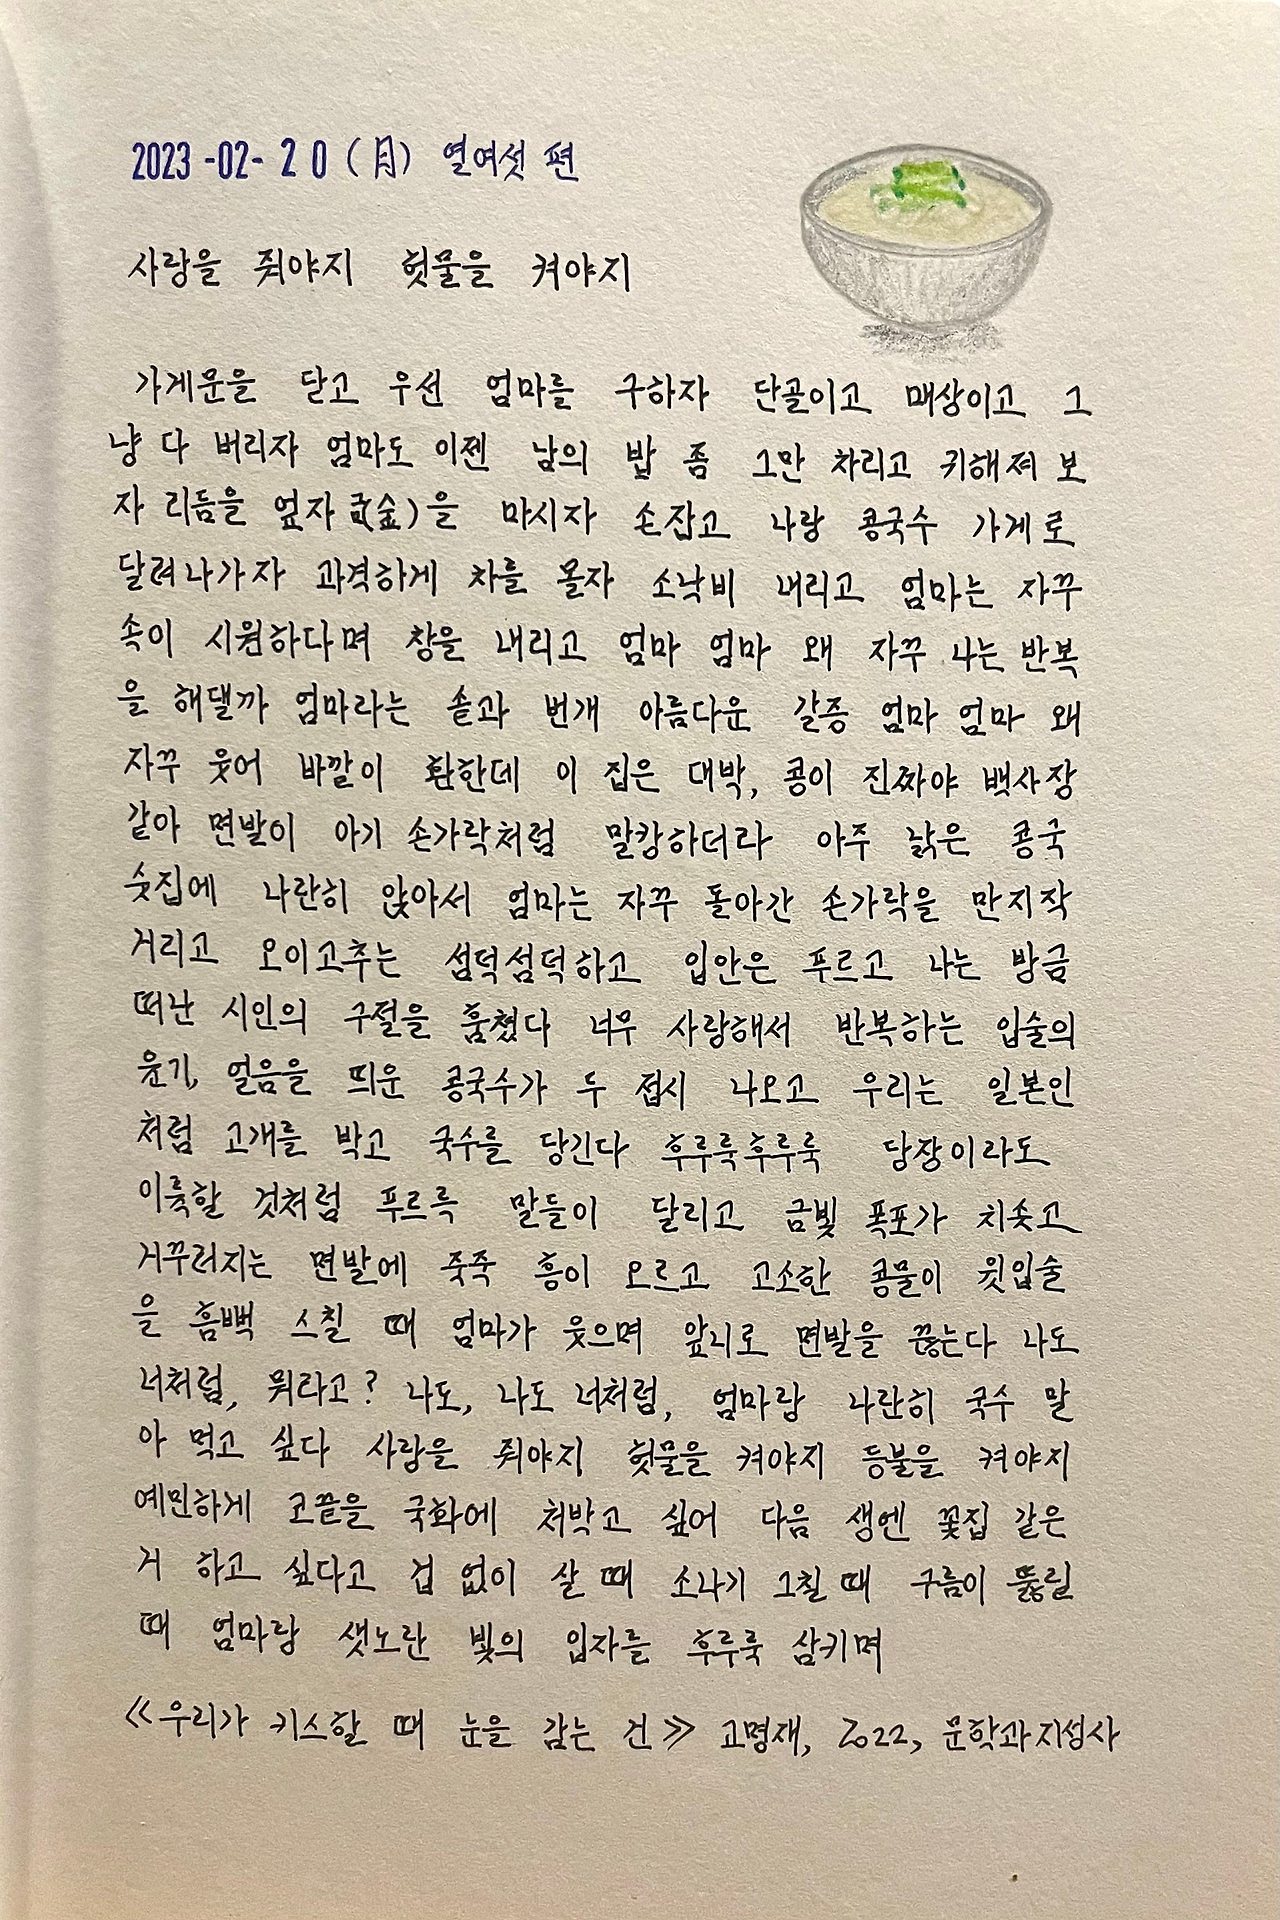 2023-02-20(月) 열여섯 편
사랑을 줘야지 헛물을 켜야지
가게문을 닫고 우선 엄마를 구하자 단골이고 매상이고 그
냥 다 버리자 엄마도 이젠 남의 밥 좀 그만 차리고 귀해져 보
자 리듬을 엎자 금(金)을 마시자 손잡고 나랑 콩국수 가게로
달려나가자 과격하게 차를 몰자 소낙비 내리고 엄마는 자꾸
속이 시원하다며 창을 내리고 엄마 엄마 왜 자꾸 나는 반복
을 해댈까 엄마라는 솥과 번개 아름다운 갈증 엄마 엄마 왜
자꾸 웃어 바깥이 환한데 이 집은 대박, 콩이 진짜야 백사장
같아 면발이 아기 손가락처럼 말캉하더라 아주 낡은 콩국
숫집에 나란히 앉아서 엄마는 자꾸 돌아간 손가락을 만지작
거리고 오이고추는 섬덕섬덕하고 입안은 푸르고 나는 방금
떠난 시인의 구절을 훔쳤다 너무 사랑해서 반복하는 입술의
윤기, 얼음을 띄운 콩국수가 두 접시 나오고 우리는 일본인
처럼 고개를 박고 국수를 당긴다 후루룩후루룩 당장이라도
이륙할 것처럼 푸르륵 말들이 달리고 금빛 폭포가 치솟고
거꾸러지는 면발에 죽죽 흥이 오르고 고소한 콩물이 윗입술
을 흠뻑 스칠 때 엄마가 웃으며 앞니로 면발을 끊는다 나도
너처럼, 뭐라고? 나도, 나도 너처럼, 엄마랑 나란히 국수 말
아 먹고 싶다 사랑을 줘야지 헛물을 켜야지 등불을 켜야지
예민하게 코끝을 국화에 처박고 싶어 다음 생엔 꽃집 같은
거 하고 싶다고 겁 없이 살 때 소나기 그칠 때 구름이 뚫릴
때 엄마랑 샛노란 빛의 입자를 후루룩 삼키며
≪우리가 키스할 때 눈을 감는 건≫ 고명재, 2022, 문학과지성사